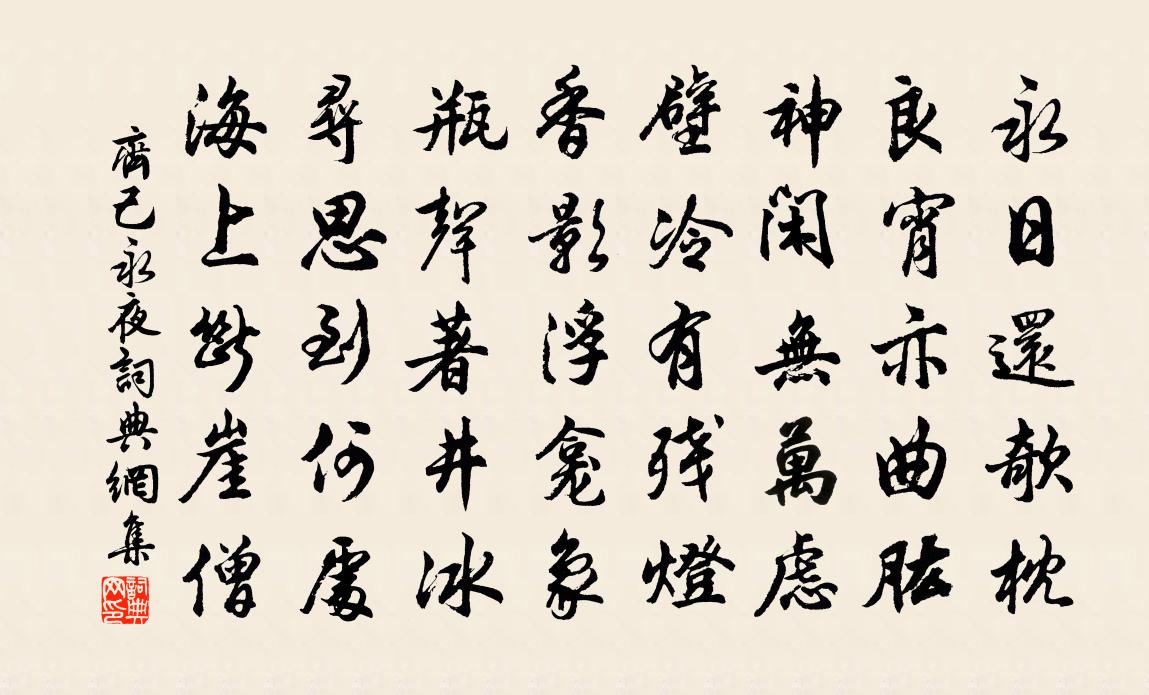 永日還欹枕
良宵亦曲肱
神閑無萬慮
壁冷有残燈
香影浮龕象
瓶聲著井冰
尋思到何處
海上斷崖僧
齊己永夜詞典網集
詞典网印